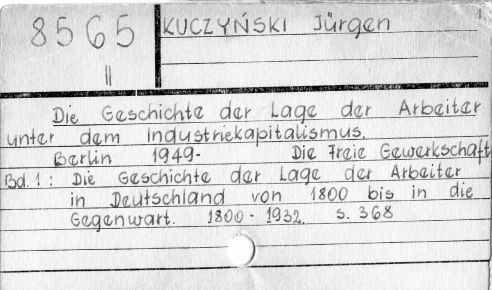 8565
II
KUCZYŃSKI Jürgen
Die Geschichte der Lage der Arbeiter
unter dem Industriekapitalismus.
Berlin 1949- Die Freie Gewerkschaft
Bd. 1: Die Geschichte der Lage der Arbeiter
in Deutschland von 1800 bis in die
Gegenwart. 1800-1932. s. 368